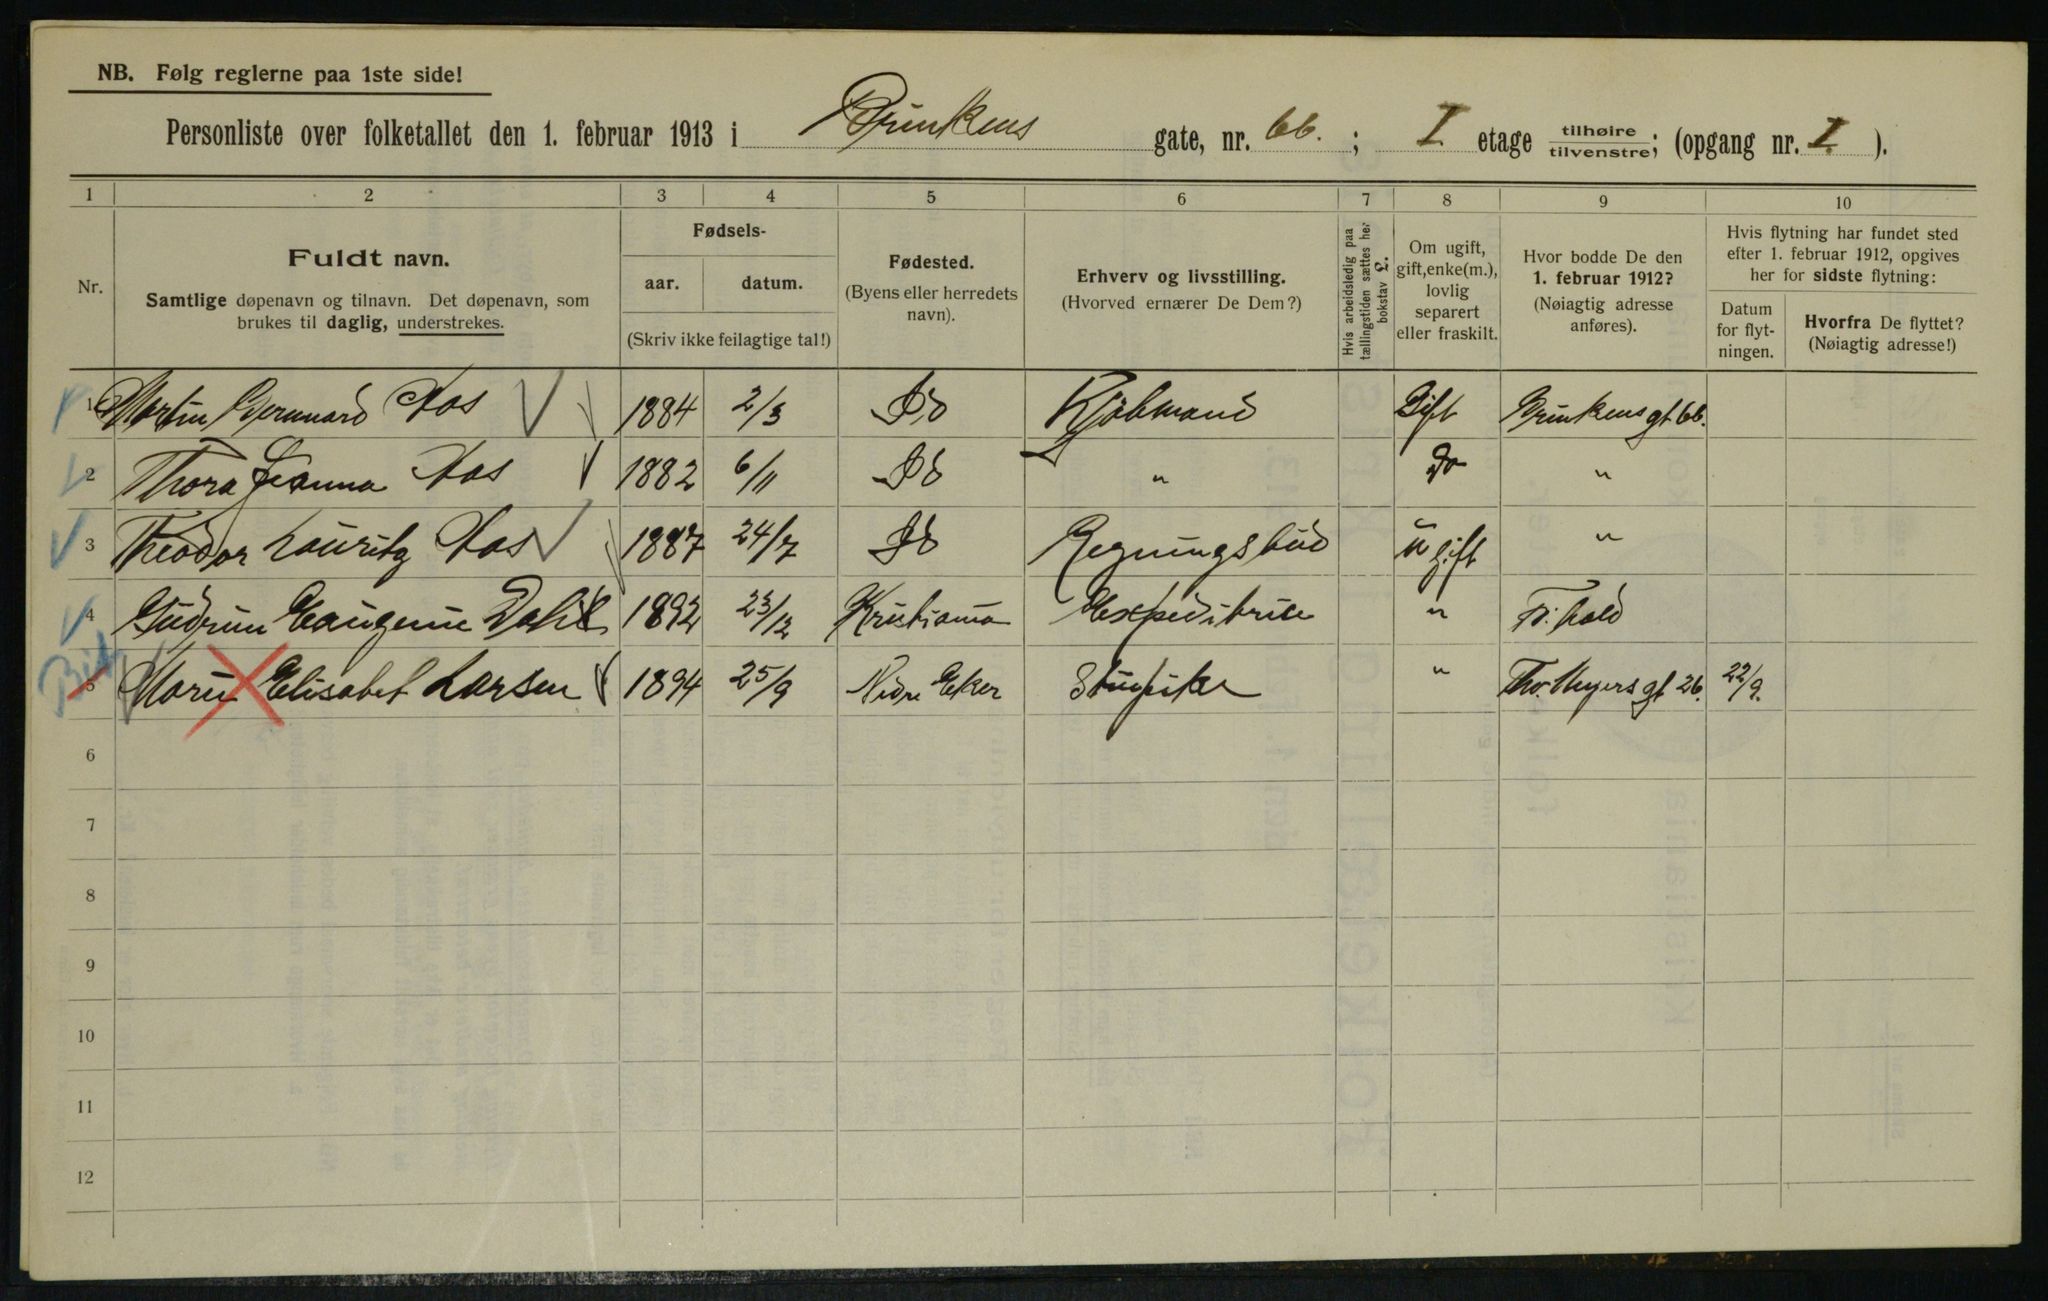 NB. Følg reglerne paa 1ste side!
Personliste over folketallet den 1. februar 1913 i Brinkens gate, nr. 66. ; I etage tilhøire tilvenstre; (opgang nr. I ).
1 2 3 4 5 6 7 8 9 10
Nr.
Fuldt navn.
Samtlige døpenavn og tilnavn. Det døpenavn, som
brukes til daglig, understrekes.
Fødsels-
aar. datum.
(Skriv ikke feilagtige tal!)
Fødested.
(Byens eller herredets
navn).
Erhverv og livsstilling.
(Hvorved ernærer De Dem?)
Hvis arbeidsledig paa
tællingstiden sættes her
bokstav £.
Om ugift,
gift, enke(m.),
lovlig
separert
eller fraskilt.
Hvor bodde De den
1. februar 1912?
(Nøiagtig adresse
anføres).
Hvis flytning har fundet sted
efter 1. februar 1912, opgives
her for sidste flytning:
Datum
for flyt-
ningen.
Hvorfra De flyttet?
(Nøiagtig adresse!)
1 Martin Bernnard Aas 1884 2/3 Kjøbmand Gift Brinkens gt 66.
2 Thora Jeanna Aas 1882 6/11 " Do "
3 Theodor Lauritz Aas 1887 24/7 Regningsbud Ugift "
4 Gudrun Eaugenie Dahl 1892 23/12 Kristiania Expeditrice " Fr.hald
5 Marie Elisabet Larsen 1894 25/9 Nedre Eker Stuepike " Th. Meyers gt 26. 22/9.
6
7
8
9
10
11
12